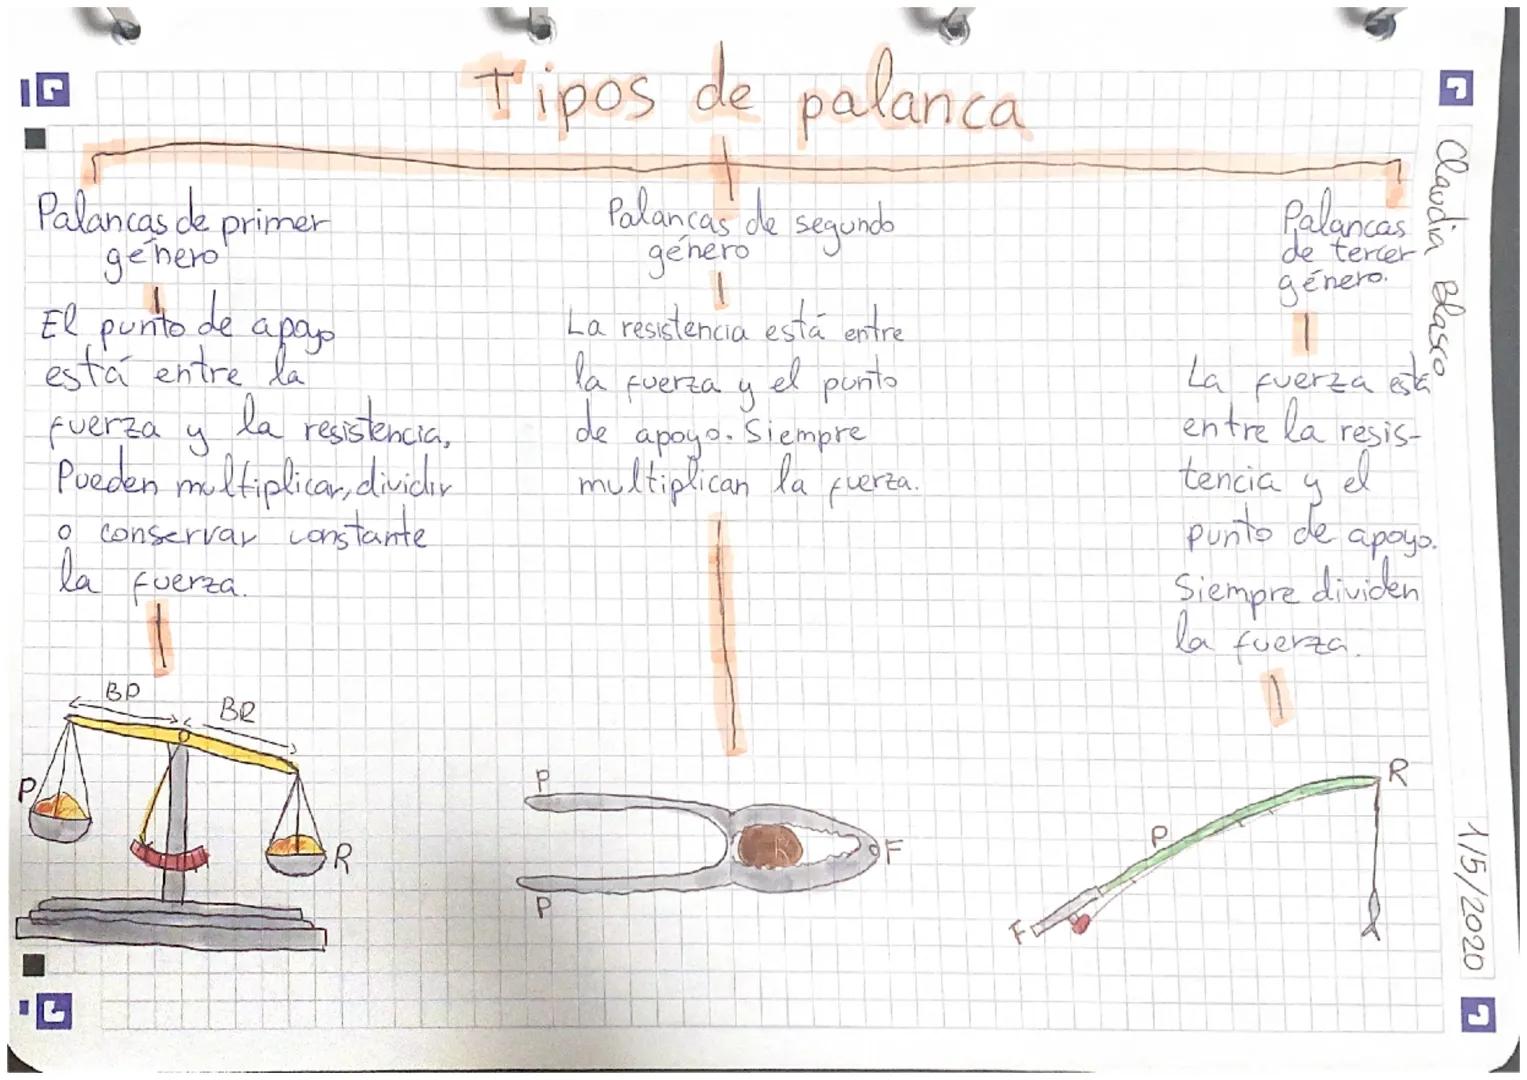 Tipos de palanca
Palancas de primer
género
El punto de apoyo
está entre la
fuerza y la resistencia,
Pueden multiplicar, dividir
o conservar constante
la fuerza.
BP
BR
P
R
Palancas de segundo
género
La resistencia está entre
la fuerza y el punto
de apoyo. Siempre
multiplican la fuerza.
P
R
F
P
Palancas
de tercer
género.
La fuerza está
entre la resis-
tencia y el
punto de apoyo.
Siempre dividen
la fuerza.
R
P
F
Claudia Blasco
1/5/2020